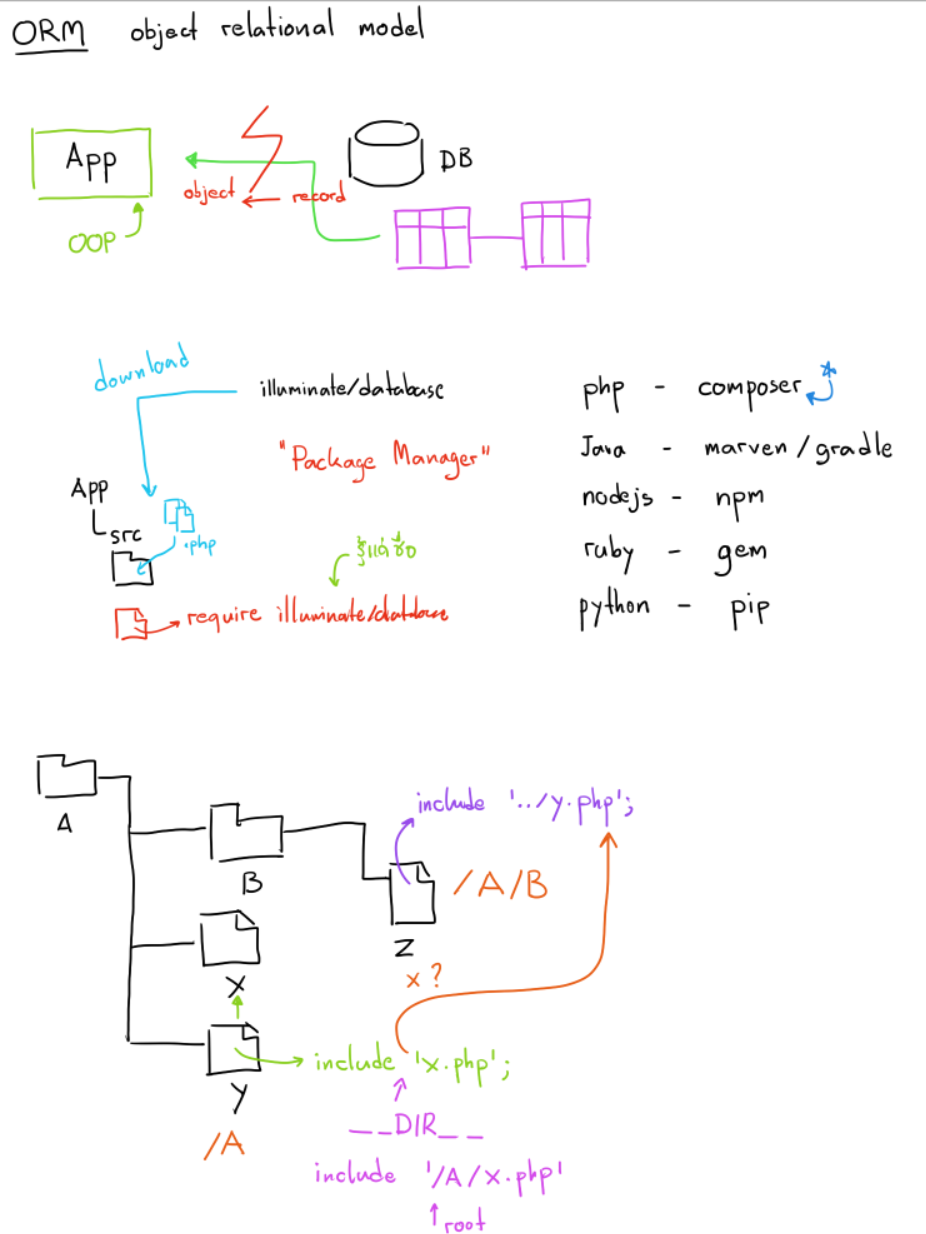 ORM object relational model
App
DB
object ← record
OOP
download
illuminate/database
"Package Manager"
App
src
.php
รู้แค่ชื่อ
require illuminate/database
php - composer *
Java - marven / gradle
nodejs - npm
ruby - gem
python - pip
A
include '../y.php';
B
/A/B
Z
X
x ?
include 'x.php';
Y
/A
__DIR__
include '/A/x.php'
root